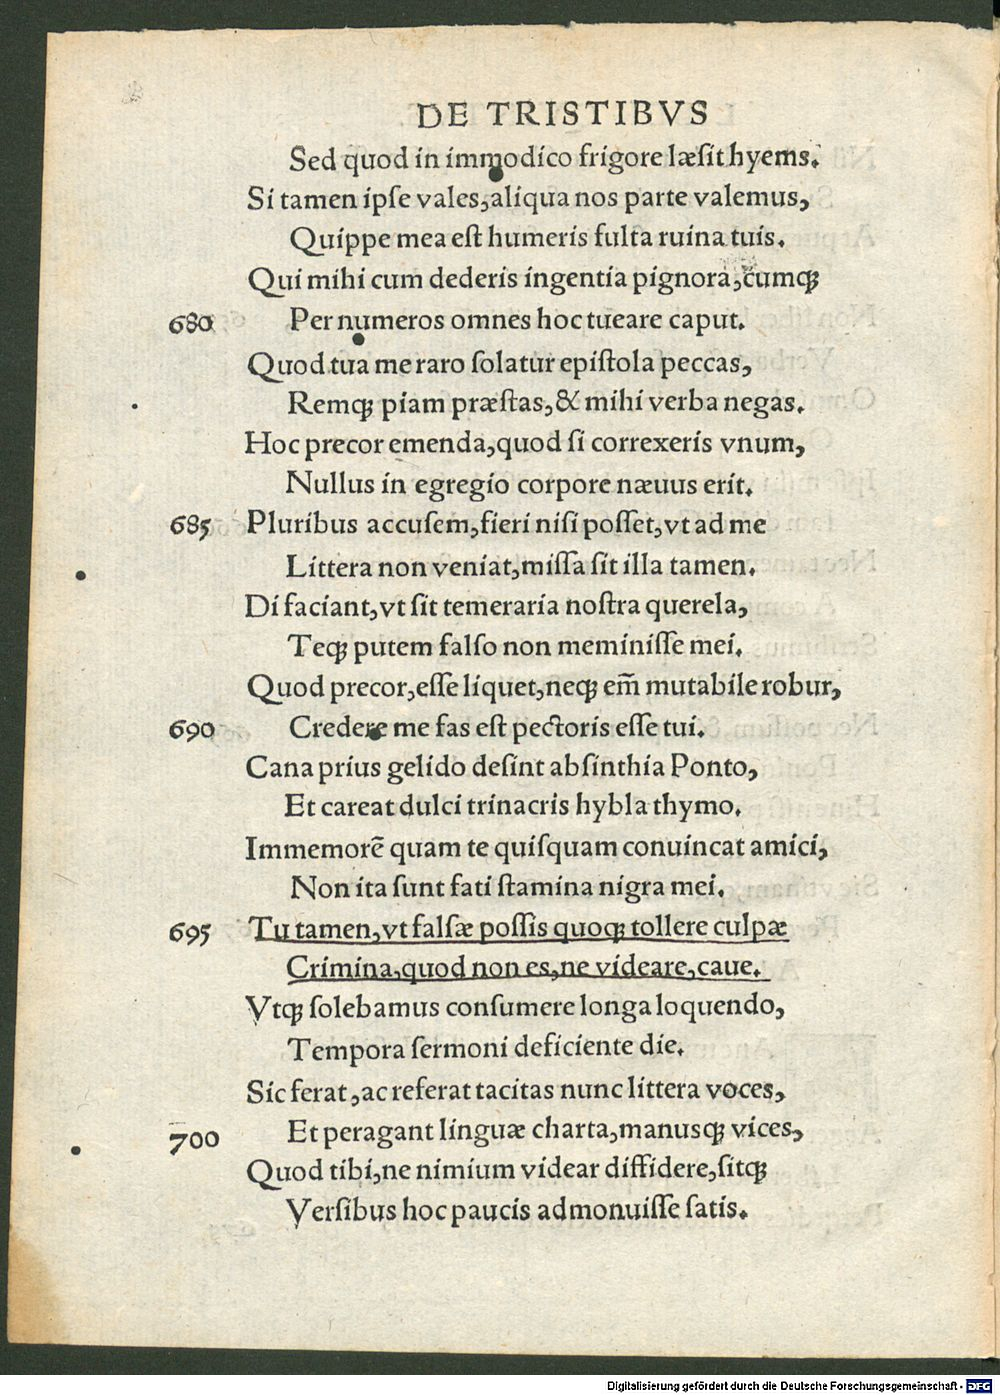 DE TRISTIBVS
Sed quod in immodico frigore læsit hyems.
Si tamen ipse vales, aliqua nos parte valemus,
Quippe mea est humeris fulta ruina tuis.
Qui mihi cum dederis ingentia pignora, cumqȝ
680 Per numeros omnes hoc tueare caput.
Quod tua me raro solatur epistola peccas,
Remqȝ piam præstas, & mihi verba negas.
Hoc precor emenda, quod si correxeris vnum,
Nullus in egregio corpore næuus erit.
685 Pluribus accusem, fieri nisi posset, vt ad me
Littera non veniat, missa sit illa tamen.
Di faciant, vt sit temeraria nostra querela,
Teqȝ putem falso non meminisse mei.
Quod precor, esse liquet, neqȝ em̃ mutabile robur,
690 Credere me fas est pectoris esse tui.
Cana prius gelido desint absinthia Ponto,
Et careat dulci trinacris hybla thymo.
Immemorẽ quam te quisquam conuincat amici,
Non ita sunt fati stamina nigra mei.
695 Tu tamen, vt falsæ possis quoqȝ tollere culpæ
Crimina, quod non es, ne videare, caue.
Vtqȝ solebamus consumere longa loquendo,
Tempora sermoni deficiente die.
Sic ferat, ac referat tacitas nunc littera voces,
700 Et peragant linguæ charta, manusqȝ vices,
Quod tibi, ne nimium videar diffidere, sitqȝ
Versibus hoc paucis admonuisse satis.
Digitalisierung gefördert durch die Deutsche Forschungsgemeinschaft - DFG